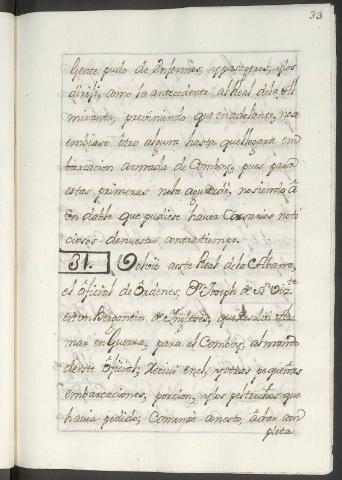 33
Gente pudo de Enfermos, y pasageros, y los
dirijí, como la antecedente al Real de la Al
miranta, previniendo que en adelante, no se
embiase otro alguna hasta que llegara em
barcacion armada de Comboy, pues para
estas primeras no la aguardé, no siendo â
ún dable que pudiese haver Corsarios noti
ciosos de nuestro contratiempo.
31. Volvió a este Real de la Abarra,
el Óficial de Órdenes, Dn. Joseph de
en un Bergantin de Ingleses, que resolví Ar
mar en Guerra, para el Comboy, al mando
de este Óficial; Recivi en el, y otras pequeñas
embarcaciones, porcion, y los peltrechos que
havia pedido; Comenzé con esto, â dar com
pleta